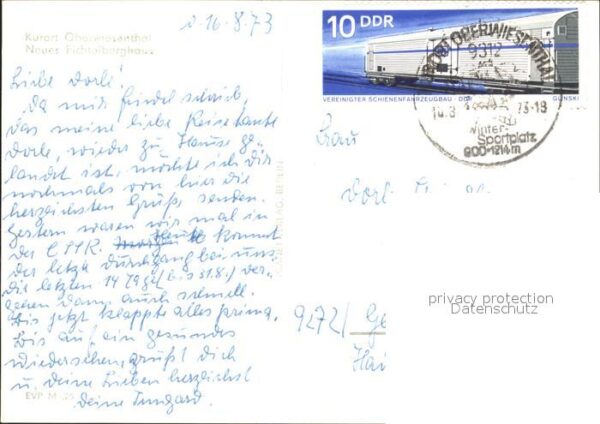 d. 16.8.73
Kurort Oberwiesenthal
Neues Fichtelberghaus
Liebe Dorle!
Da mir Friedel schrieb,
das meine liebe Reisetante
Dorle, wieder zu Hause ge-
landet ist, möchte ich Dir
nochmals von hier die
herzlichsten Grüße senden.
Gestern waren wir mal in
der CSSR. Heute kommt
der letzte Durchgang bei uns.
Die letzten 14 Tage (bis 31.8.) ver-
gehen dann auch schnell.
Bis jetzt klappte alles prima.
Bis auf ein gesundes
Wiedersehen, grüßt Dich
u. Deine Lieben herzlichst
Deine Irmgard.
EVP M
VERLAG, BERLIN
10 DDR
VEREINIGTER SCHIENENFAHRZEUGBAU · DDR
GLINSKI
KURORT OBERWIESENTHAL
9312
16.8.73-18
Winter-
Sportplatz
900-1214m
Frau
9272/
privacy protection
Datenschutz